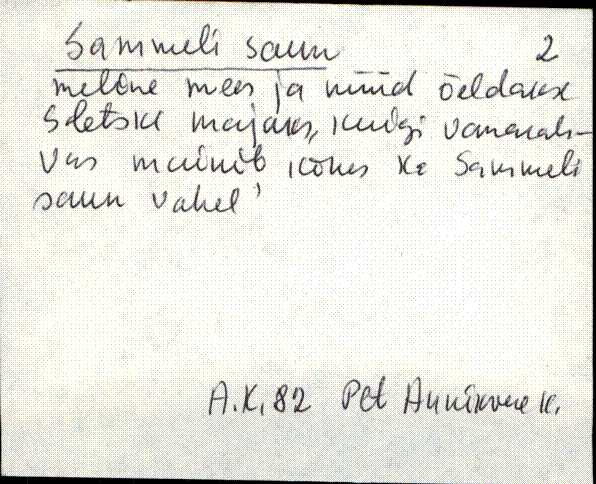 Sammeli saun 2
meline mees ja nüüd öeldakse
Sletski majaks, kuigi vanarah-
vas mainib kõnes ke Sammeli
saun vahel'
A.K. 82 Pct Annikvere k.